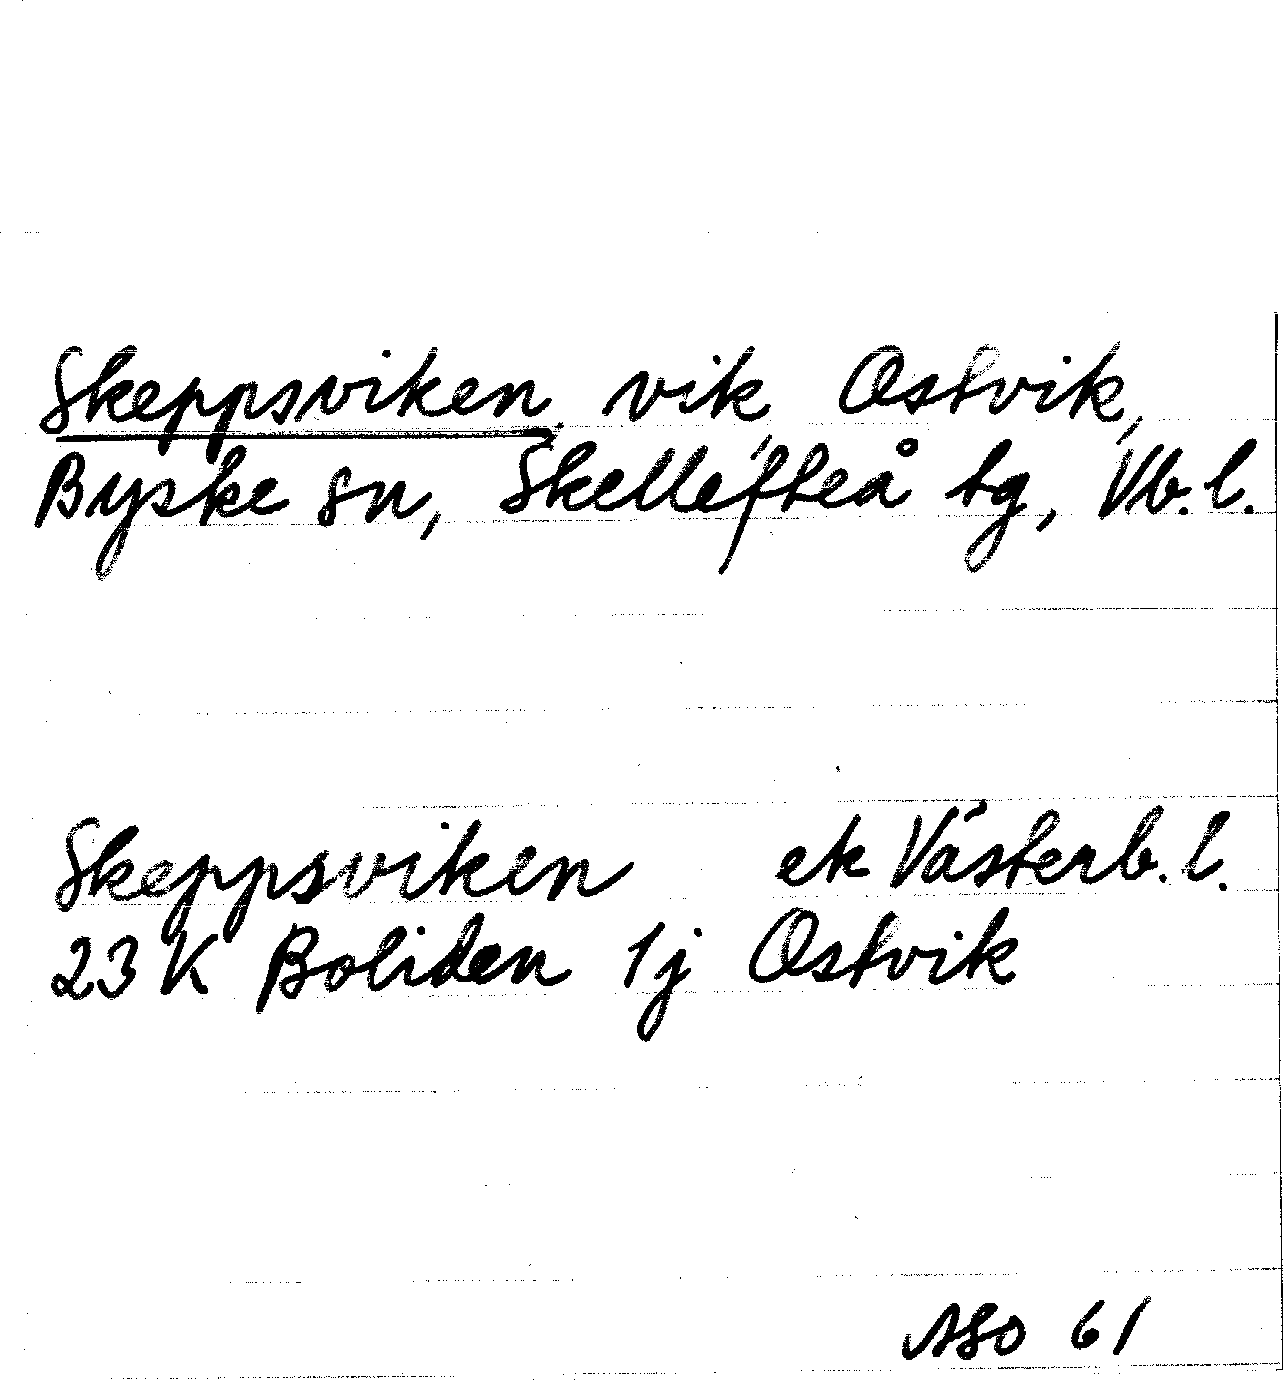 Skeppsviken, vik, Ostvik,
Byske sn, Skellefteå tg, Vb.l.
Skeppsviken ek Västerb.l.
23 K Boliden 1j Ostvik
ASO 61